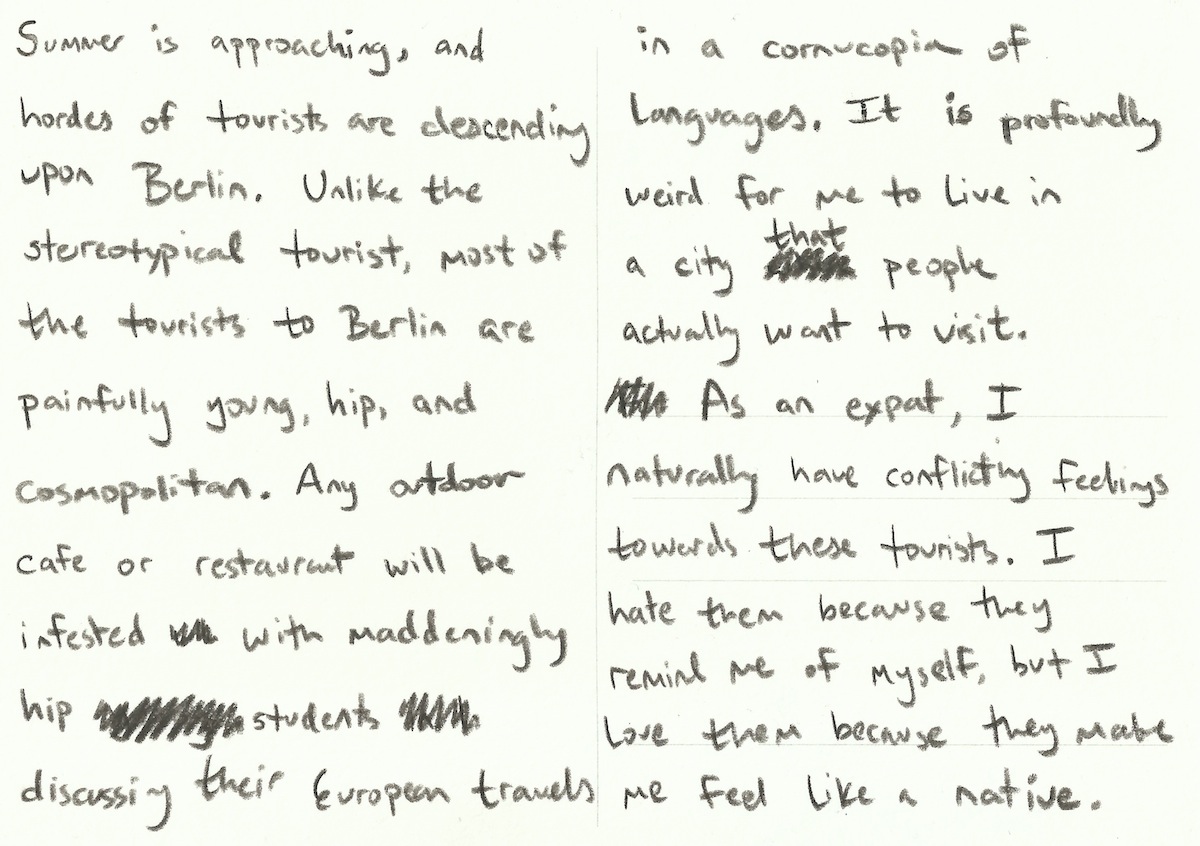 Summer is approaching, and
hordes of tourists are descending
upon Berlin. Unlike the
stereotypical tourist, most of
the tourists to Berlin are
painfully young, hip, and
cosmopolitan. Any outdoor
cafe or restaurant will be
infested with maddeningly
hip students
discussing their European travels
in a cornucopia of
languages. It is profoundly
weird for me to live in
a city that people
actually want to visit.
As an expat, I
naturally have conflicting feelings
towards these tourists. I
hate them because they
remind me of myself, but I
love them because they make
me feel like a native.